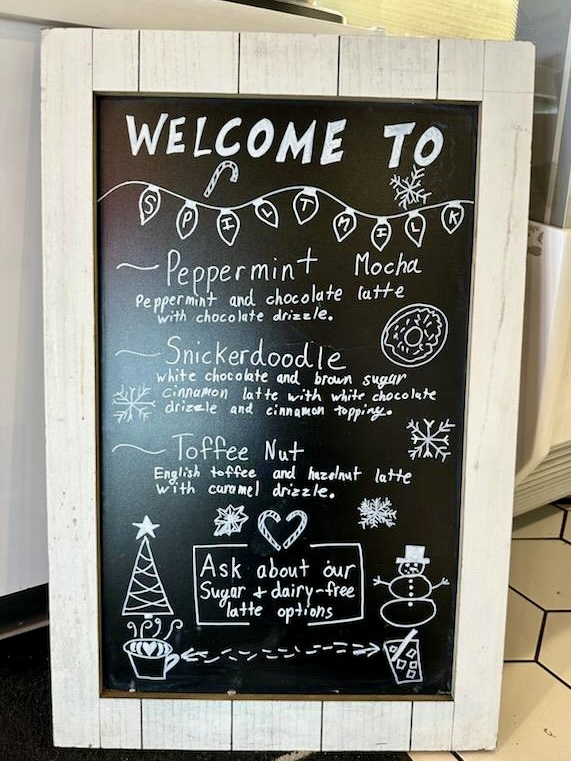 WELCOME TO
SPILT MILK
Peppermint Mocha
Peppermint and chocolate latte
with chocolate drizzle.
Snickerdoodle
white chocolate and brown sugar
cinnamon latte with white chocolate
drizzle and cinnamon topping.
Toffee Nut
English toffee and hazelnut latte
with caramel drizzle.
Ask about our
Sugar + dairy-free
latte options